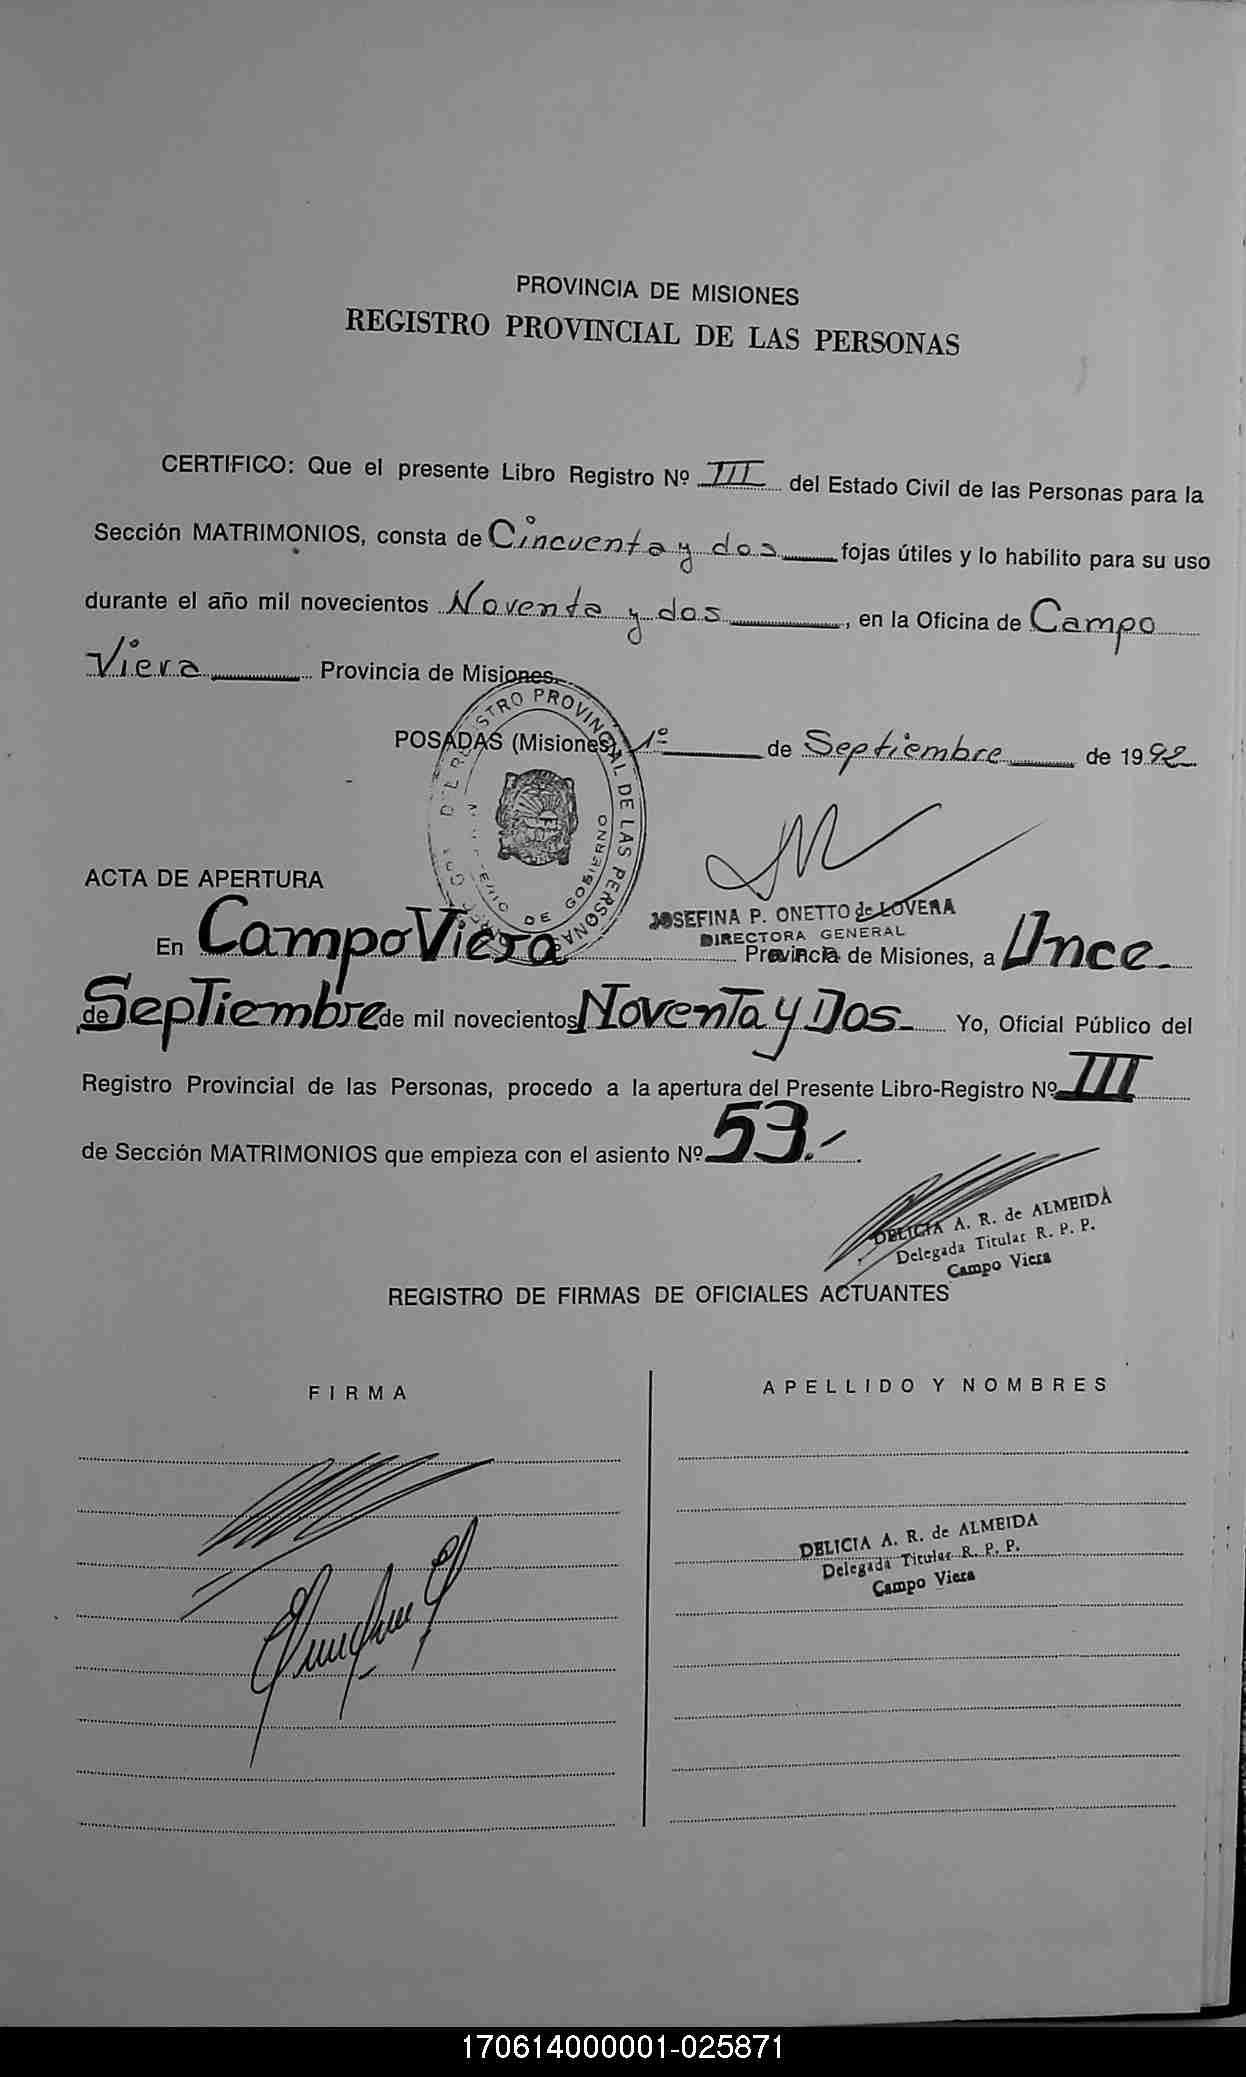 PROVINCIA DE MISIONES
REGISTRO PROVINCIAL DE LAS PERSONAS
CERTIFICO: Que el presente Libro Registro Nº III del Estado Civil de las Personas para la
Sección MATRIMONIOS, consta de Cincuenta y dos fojas útiles y lo habilito para su uso
durante el año mil novecientos Noventa y dos, en la Oficina de Campo
Viera Provincia de Misiones.
POSADAS (Misiones), 1º de Septiembre de 1992
REGISTRO PROVINCIAL DE LAS PERSONAS
DE GOBIERNO
JOSEFINA P. ONETTO de LOVERA
DIRECTORA GENERAL
ACTA DE APERTURA
En Campo Viera Provincia de Misiones, a Once
de Septiembre de mil novecientos Noventa y Dos Yo, Oficial Público del
Registro Provincial de las Personas, procedo a la apertura del Presente Libro-Registro Nº III
de Sección MATRIMONIOS que empieza con el asiento Nº 53.-
DELICIA A. R. de ALMEIDA
Delegada Titular R. P. P.
Campo Viera
REGISTRO DE FIRMAS DE OFICIALES ACTUANTES
FIRMA
APELLIDO Y NOMBRES
DELICIA A. R. de ALMEIDA
Delegada Titular R. P. P.
Campo Viera
170614000001-025871